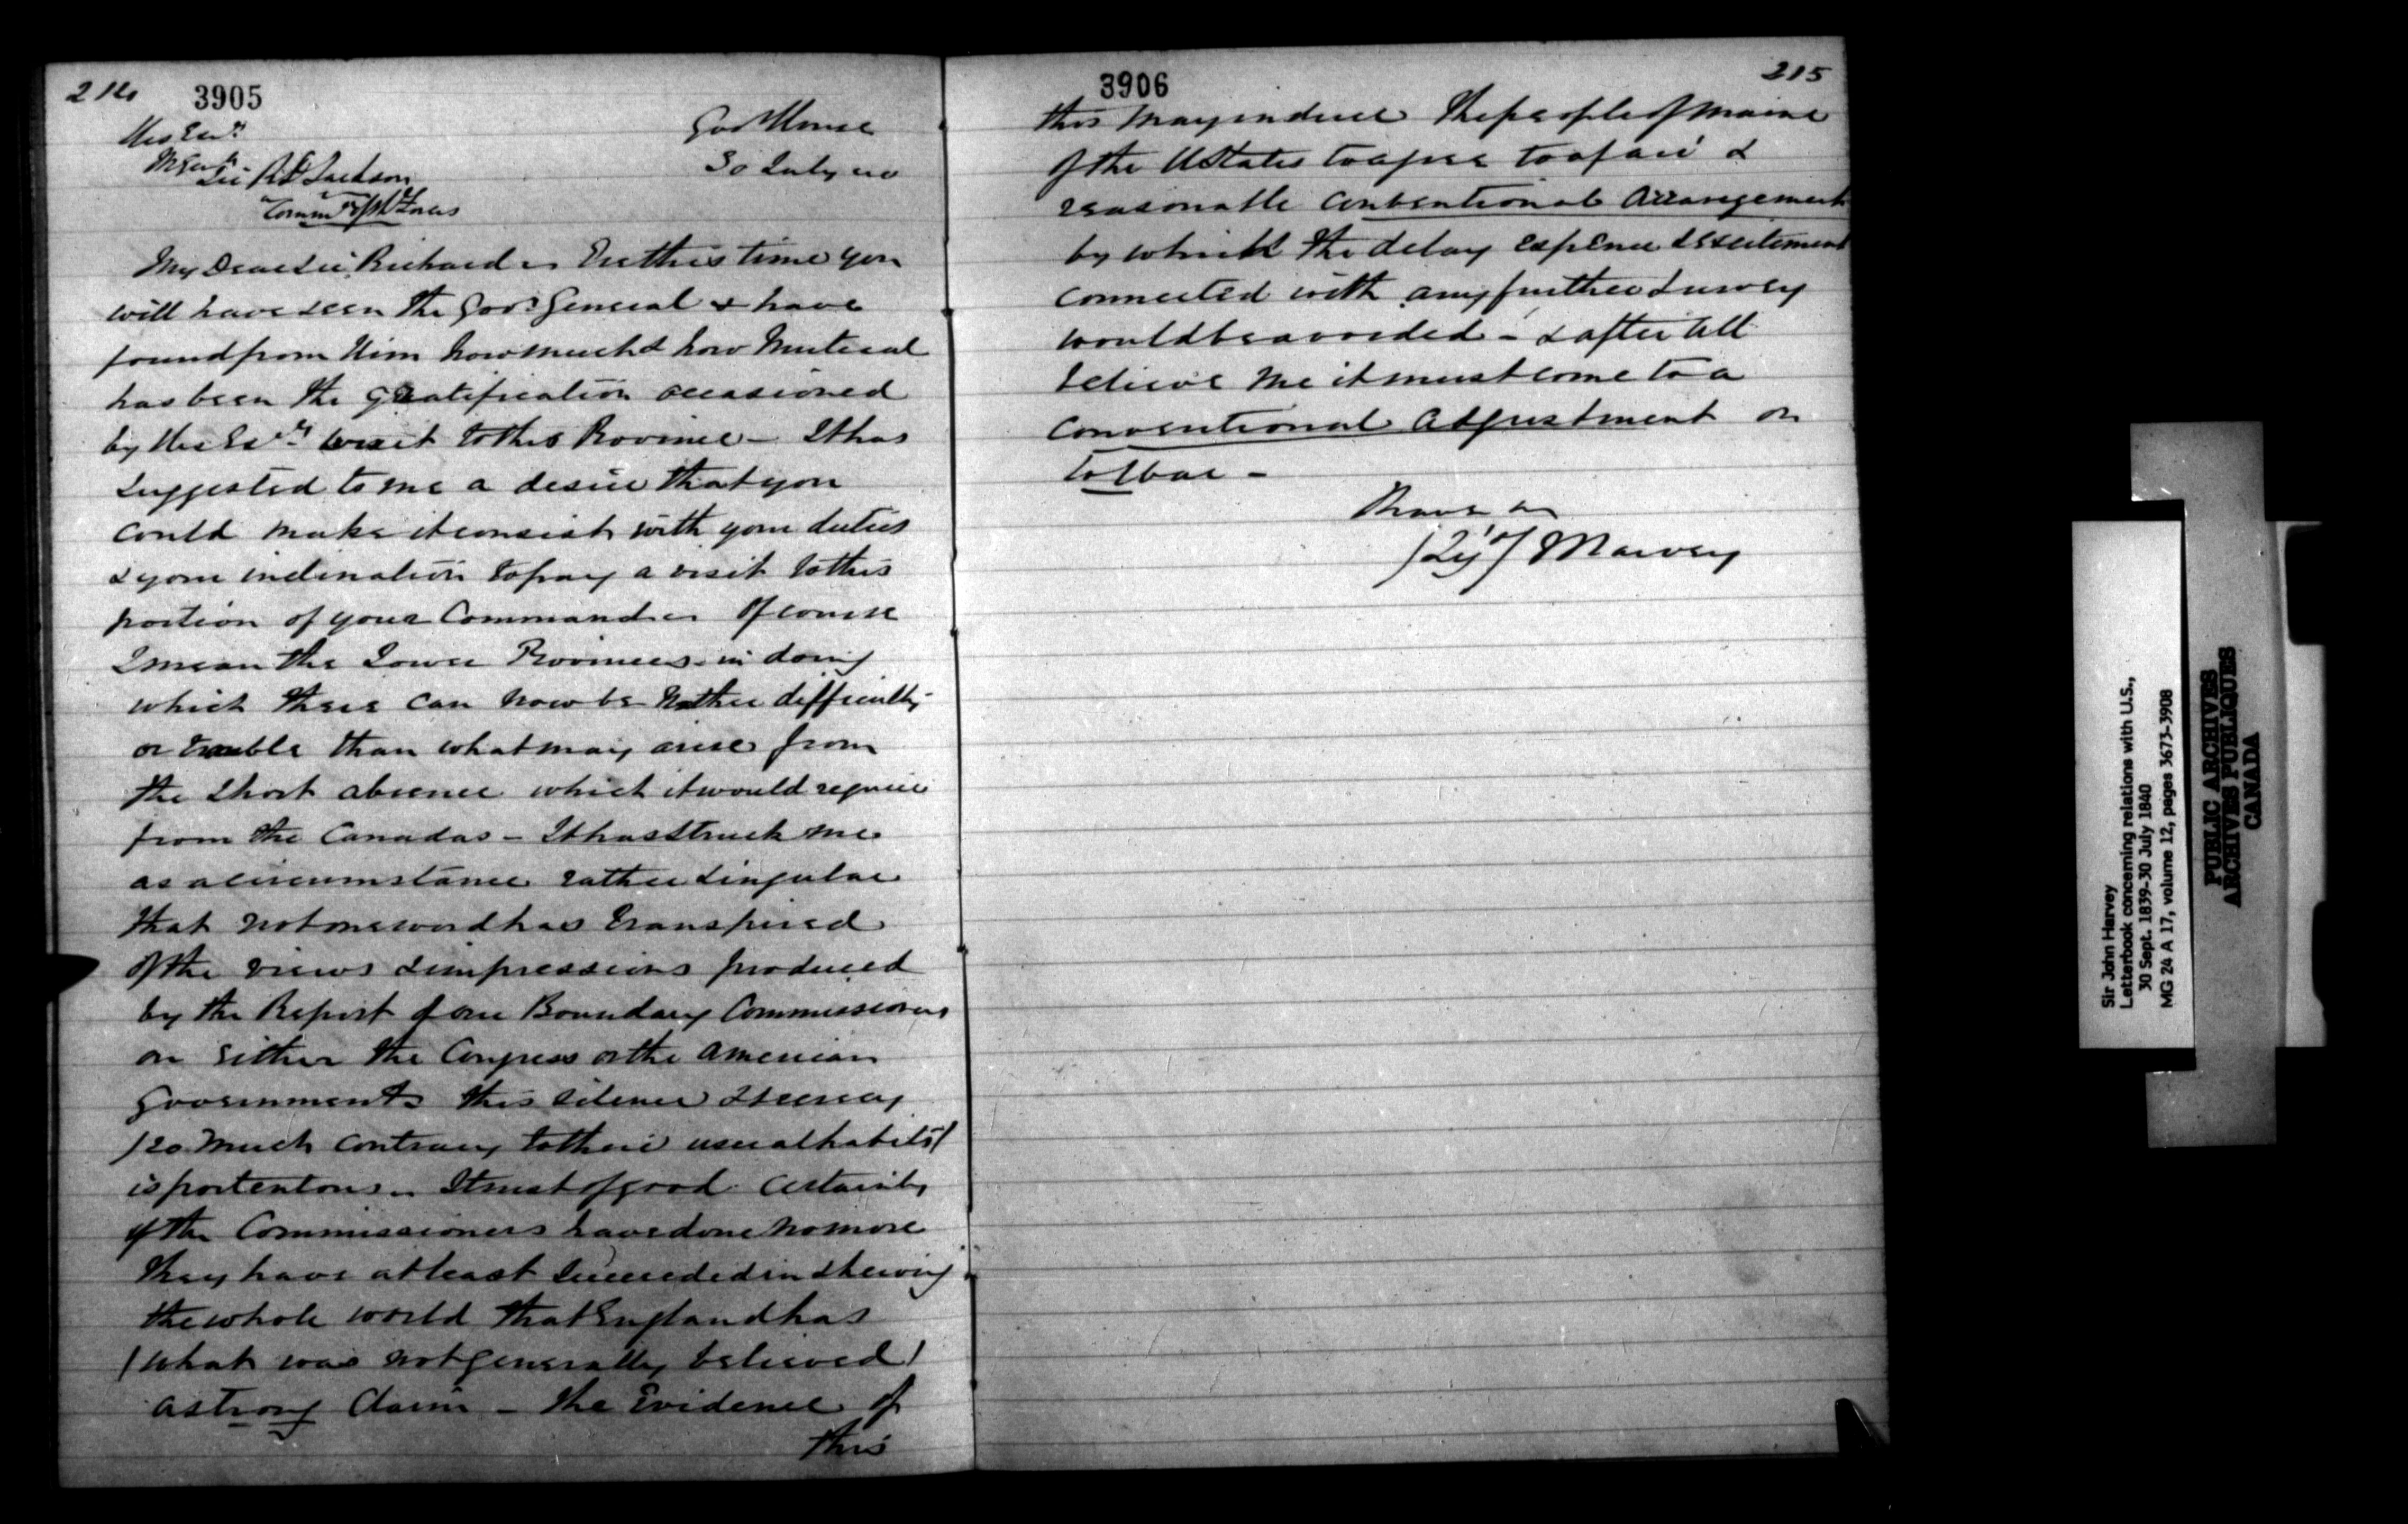 214
3905
His Exy
Govt House
M Genl
Sir R D Jackson
30 July 40
Commr of the Forces
My Dear Sir Richard – Ere this time you
will have seen the Govr General & have
found from Him how much & how mutual
has been the gratification occasioned
by His Exys visit to this Province – It has
suggested to me a desire that you
could make it consist with your duties
& your inclination to pay a visit to this
portion of your Command – Of course
I mean the Lower Provinces – in doing
which there can now be no other difficulty
or trouble than what may arise from
the short absence which it would require
from the Canadas – It has struck me
as a circumstance rather singular
that not one word has transpired
of the views & impressions produced
by the Report of our Boundary Commissioners
on either the Congress or the American
Governments this silence & secrecy
/so much contrary to their usual habits/
is portentous – I trust of good. Certainly
if the Commissioners have done no more
they have at least succeeded in shewing
the whole world that England has
/what was not generally believed/
a strong Claim – The Evidence of
this
3906
215
this may induce the people of Maine
& the U States to agree to a fair &
reasonable Conventional Arrangement
by which the delay expence & excitement
connected with any further Survey
would be avoided – & after all
believe me it must come to a
Conventional Adjustment or
to War –
I have &c
/Sigd/ J Harvey
Sir John Harvey
Letterbook concerning relations with U.S.,
30 Sept. 1839-30 July 1840
MG 24 A 17, volume 12, pages 3673-3908
PUBLIC ARCHIVES
ARCHIVES PUBLIQUES
CANADA